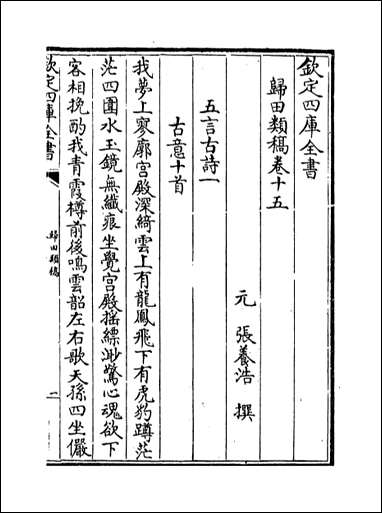 欽定四庫全書
歸田類稿卷十五
元　張養浩　撰
五言古詩一
古意十首
我夢上寥廓宫殿深綺雲上有龍鳳飛下有虎豹蹲茫
茫四圍水玉鏡無纖痕坐覺宫殿摇縹渺驚心魂欲下
客相挽酌我青霞樽前後鳴雲韶左右歌天孫四坐儼
欽定四庫全書
歸田類稿